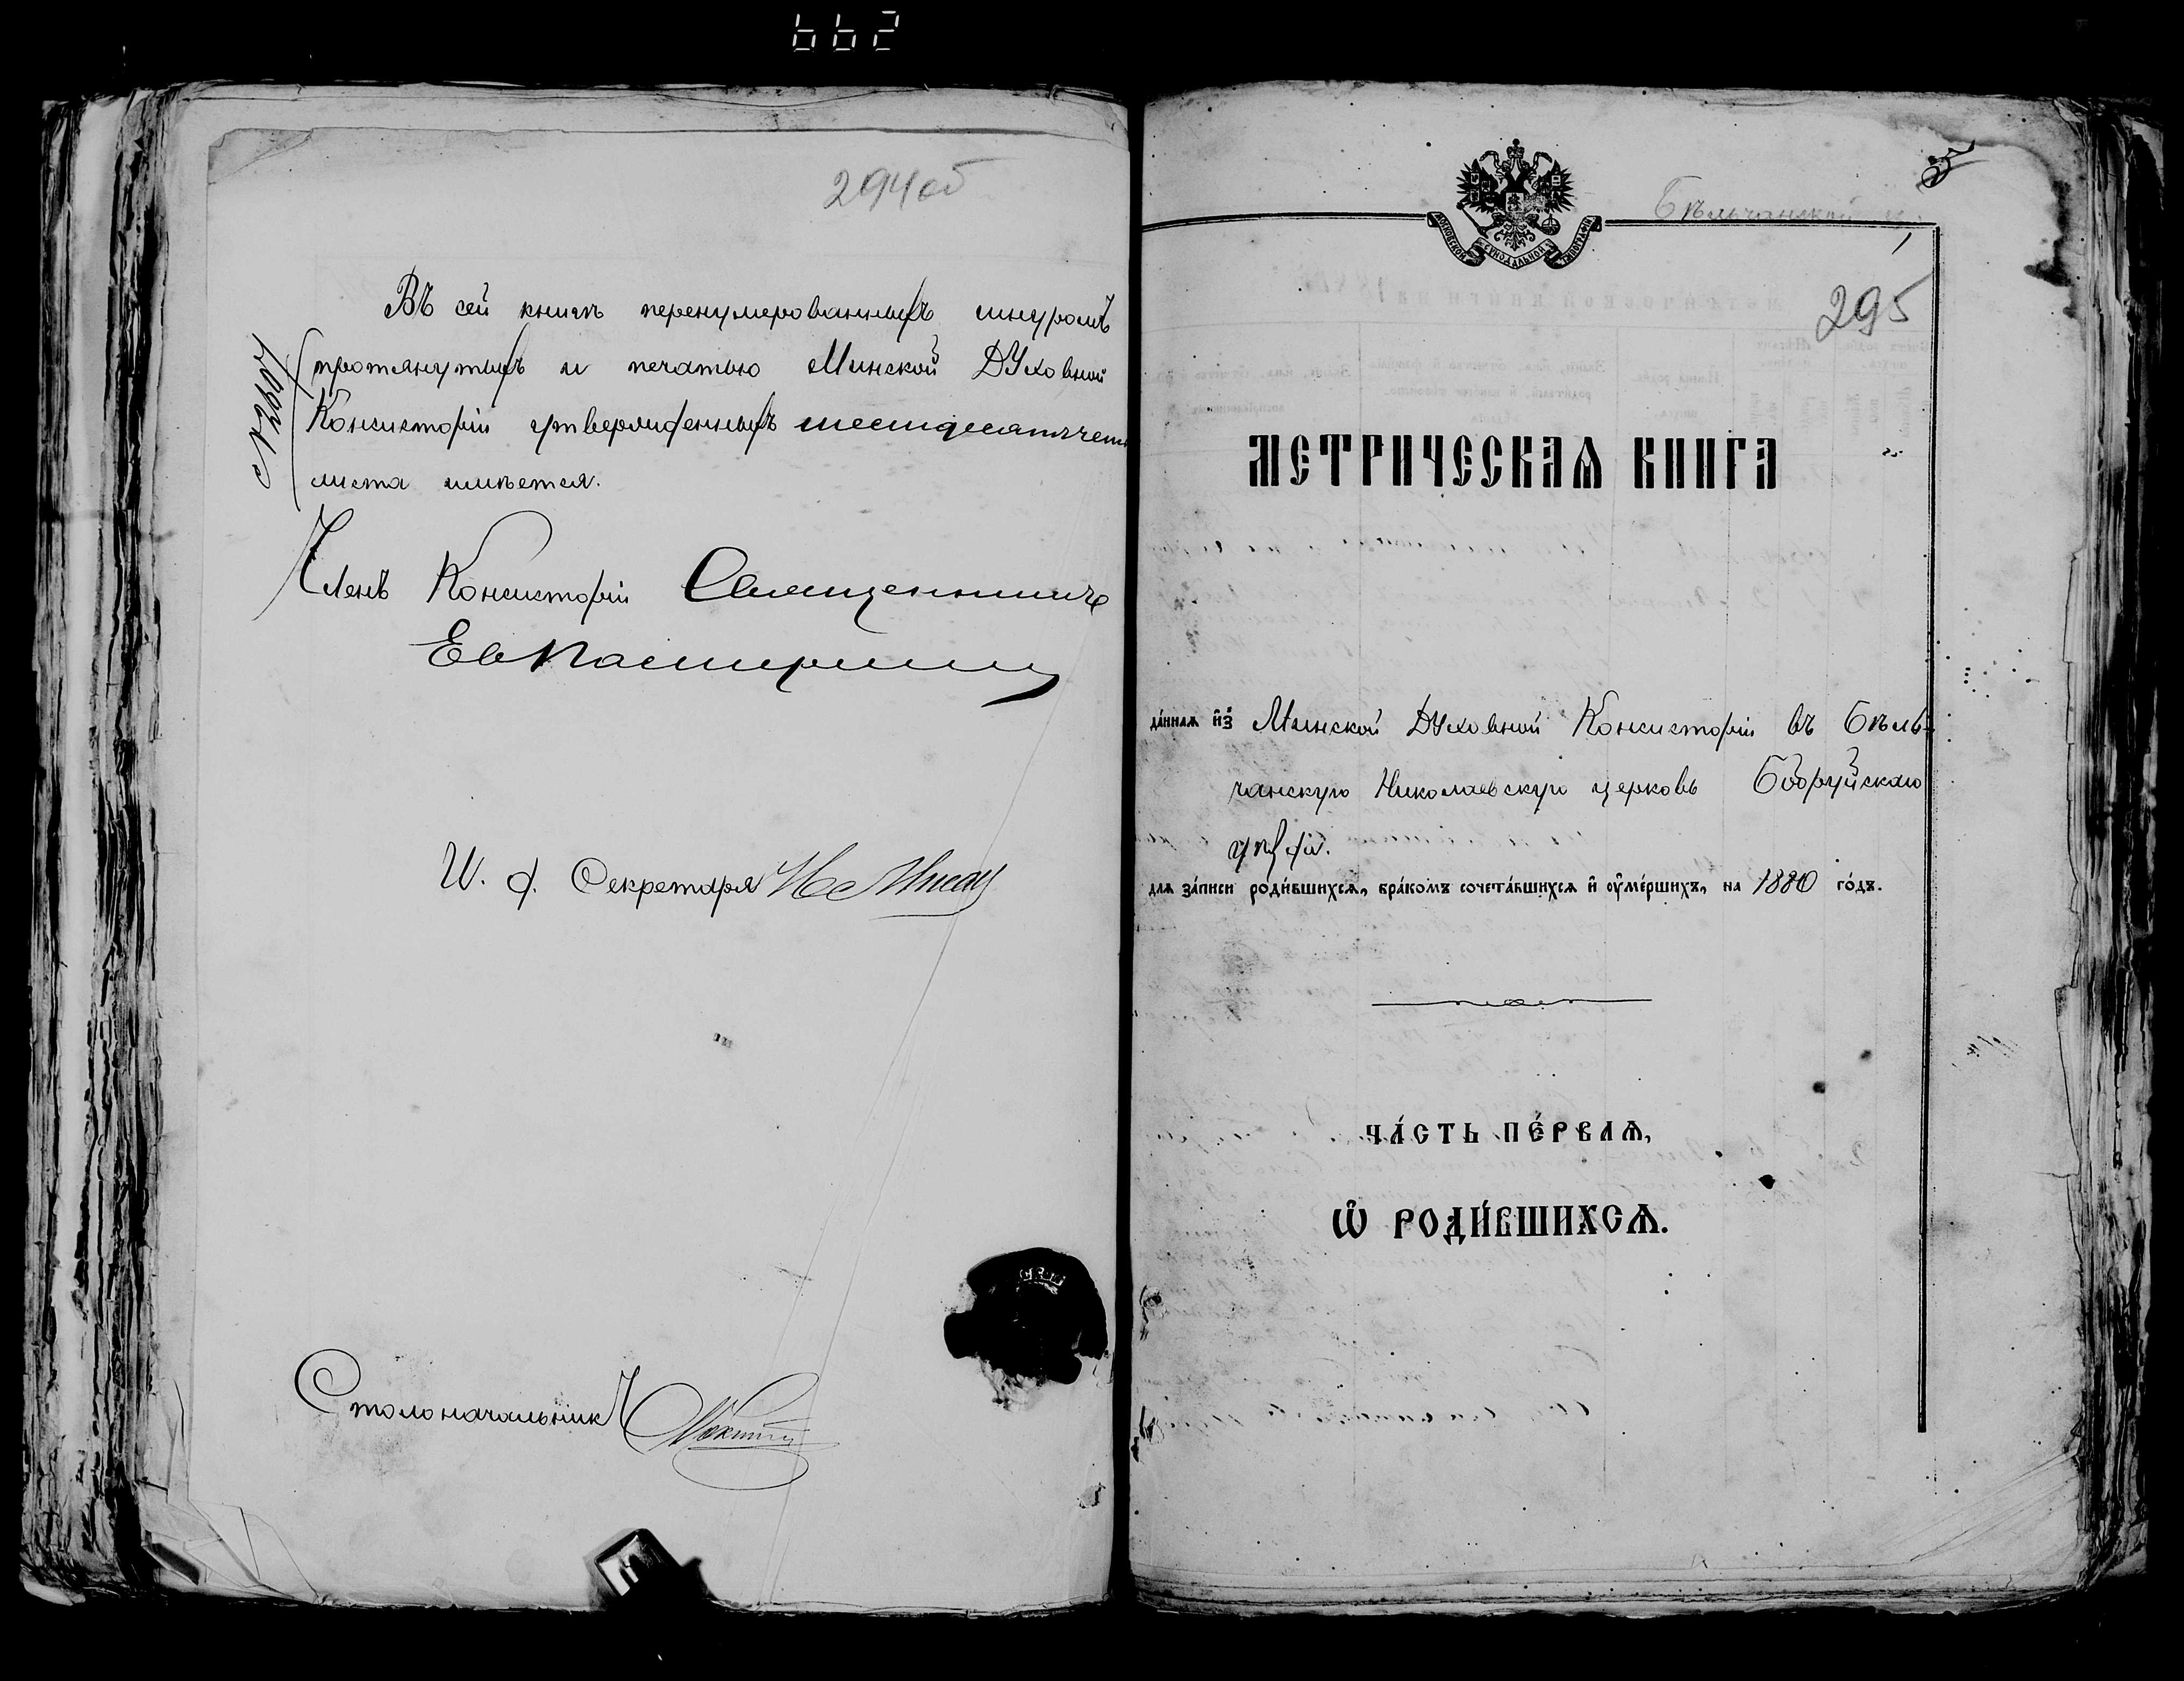 662
294об
Въ сей книгѣ перенумерованныхъ шнуромъ
протянутыхъ и печатью Минской Духовной
Консисторіи утвержденныхъ шестдесятъ
листа имѣется.
Членъ Консисторіи Священникъ
И. д. Секретаря
Столоначальникъ
Бѣльчанской
МОСКОВСКОЙ СУНОДАЛЬНОЙ ТИПОГРАФІИ
295
МЕТРИЧЕСКАѦ КНИГА
да́ннаѧ и҆з̾ Минской Духовной Консисторіи въ Бѣль-
чанскую Николаевскую церковь Бобруйскаго
уѣзда.
длѧ за́писи роди́вшихсѧ, бра́комъ сочета́вшихсѧ и҆ ᲂу҆ме́ршихъ, на 1880 го́дъ.
ЧА́СТЬ ПЕ́РВАѦ,
Ѡ҆ РОДИ́ВШИХСѦ.